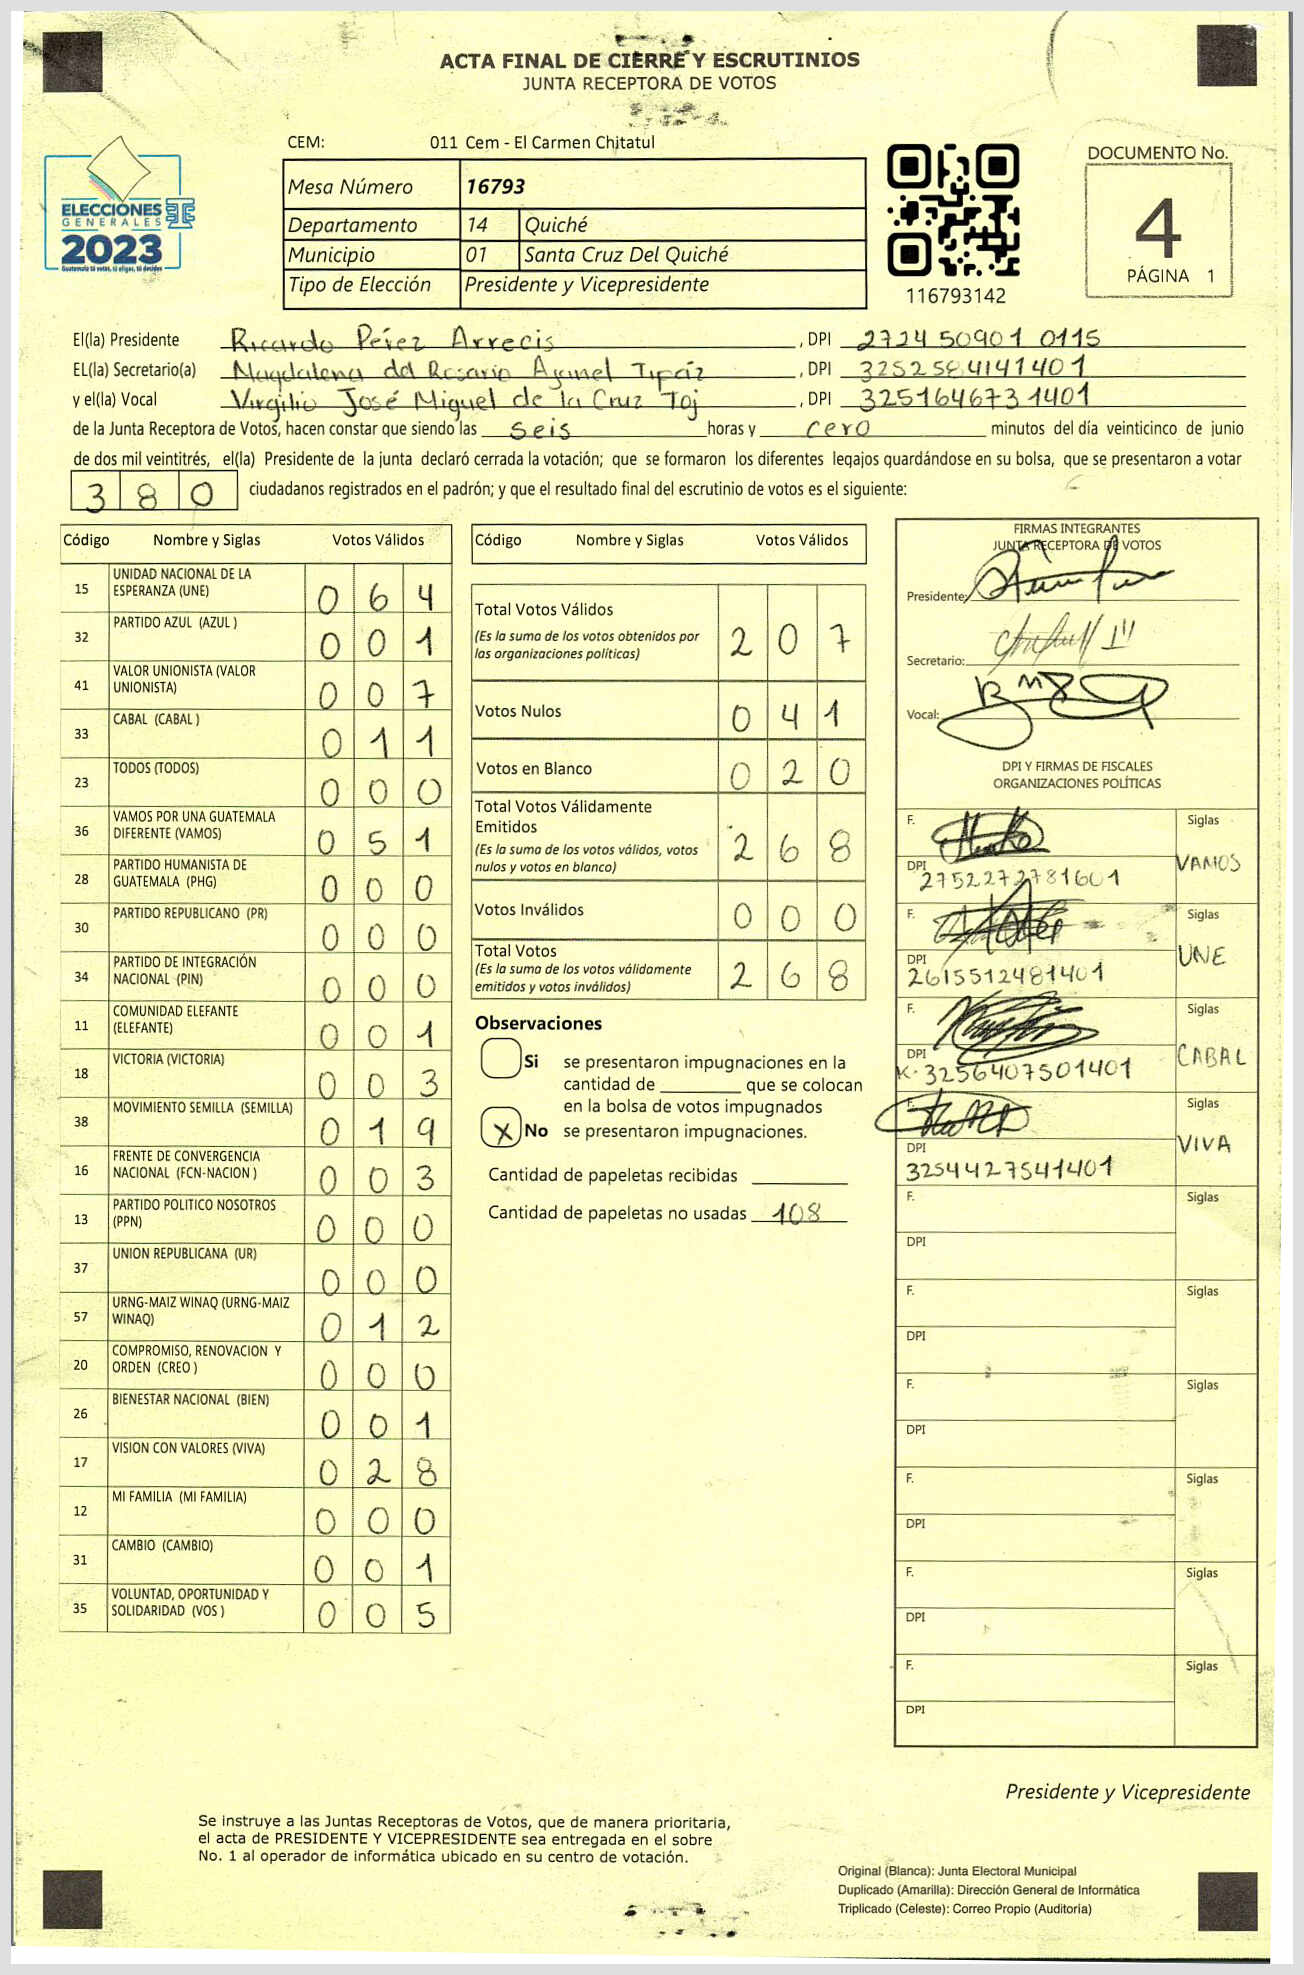 ACTA FINAL DE CIERRE Y ESCRUTINIOS
JUNTA RECEPTORA DE VOTOS
CEM: 011 Cem - El Carmen Chitatul
ELECCIONES
GENERALES
2023
Guatemala tú votas, tú eliges, tú decides
Mesa Número 16793
Departamento 14 Quiché
Municipio 01 Santa Cruz Del Quiché
Tipo de Elección Presidente y Vicepresidente
116793142
DOCUMENTO No.
4
PÁGINA 1
El(la) Presidente Ricardo Pérez Arrecis, DPI 2724 50901 0115
EL(la) Secretario(a) Magdalena del Rosario, DPI 3252584141401
y el(la) Vocal Virgilio José Miguel de la Cruz Toj, DPI 3251646731401
de la Junta Receptora de Votos, hacen constar que siendo las seis horas y cero minutos del día veinticinco de junio
de dos mil veintitrés, el(la) Presidente de la junta declaró cerrada la votación; que se formaron los diferentes legajos guardándose en su bolsa, que se presentaron a votar
380 ciudadanos registrados en el padrón; y que el resultado final del escrutinio de votos es el siguiente:
Código Nombre y Siglas Votos Válidos
15 UNIDAD NACIONAL DE LA
ESPERANZA (UNE) 0 6 4
32 PARTIDO AZUL (AZUL ) 0 0 1
41 VALOR UNIONISTA (VALOR
UNIONISTA) 0 0 7
33 CABAL (CABAL ) 0 1 1
23 TODOS (TODOS) 0 0 0
36 VAMOS POR UNA GUATEMALA
DIFERENTE (VAMOS) 0 5 1
28 PARTIDO HUMANISTA DE
GUATEMALA (PHG) 0 0 0
30 PARTIDO REPUBLICANO (PR) 0 0 0
34 PARTIDO DE INTEGRACIÓN
NACIONAL (PIN) 0 0 0
11 COMUNIDAD ELEFANTE
(ELEFANTE) 0 0 1
18 VICTORIA (VICTORIA) 0 0 3
38 MOVIMIENTO SEMILLA (SEMILLA) 0 1 9
16 FRENTE DE CONVERGENCIA
NACIONAL (FCN-NACION ) 0 0 3
13 PARTIDO POLITICO NOSOTROS
(PPN) 0 0 0
37 UNION REPUBLICANA (UR) 0 0 0
57 URNG-MAIZ WINAQ (URNG-MAIZ
WINAQ) 0 1 2
20 COMPROMISO, RENOVACION Y
ORDEN (CREO ) 0 0 0
26 BIENESTAR NACIONAL (BIEN) 0 0 1
17 VISION CON VALORES (VIVA) 0 2 8
12 MI FAMILIA (MI FAMILIA) 0 0 0
31 CAMBIO (CAMBIO) 0 0 1
35 VOLUNTAD, OPORTUNIDAD Y
SOLIDARIDAD (VOS ) 0 0 5
Código Nombre y Siglas Votos Válidos
Total Votos Válidos 2 0 7
(Es la suma de los votos obtenidos por
las organizaciones políticas)
Votos Nulos 0 4 1
Votos en Blanco 0 2 0
Total Votos Válidamente
Emitidos 2 6 8
(Es la suma de los votos válidos, votos
nulos y votos en blanco)
Votos Inválidos 0 0 0
Total Votos 2 6 8
(Es la suma de los votos válidamente
emitidos y votos inválidos)
Observaciones
Si se presentaron impugnaciones en la
cantidad de ________ que se colocan
en la bolsa de votos impugnados
X No se presentaron impugnaciones.
Cantidad de papeletas recibidas ________
Cantidad de papeletas no usadas 108
FIRMAS INTEGRANTES
JUNTA RECEPTORA DE VOTOS
Presidente:
Secretario:
Vocal:
DPI Y FIRMAS DE FISCALES
ORGANIZACIONES POLÍTICAS
F. Siglas
VAMOS
DPI
2752272781601
F. Siglas
UNE
DPI
2615512481401
F. Siglas
CABAL
DPI
3256407501401
F. Siglas
VIVA
DPI
3254427541401
F. Siglas
DPI
F. Siglas
DPI
F. Siglas
DPI
F. Siglas
DPI
F. Siglas
DPI
F. Siglas
DPI
Presidente y Vicepresidente
Se instruye a las Juntas Receptoras de Votos, que de manera prioritaria,
el acta de PRESIDENTE Y VICEPRESIDENTE sea entregada en el sobre
No. 1 al operador de informática ubicado en su centro de votación.
Original (Blanca): Junta Electoral Municipal
Duplicado (Amarilla): Dirección General de Informática
Triplicado (Celeste): Correo Propio (Auditoria)